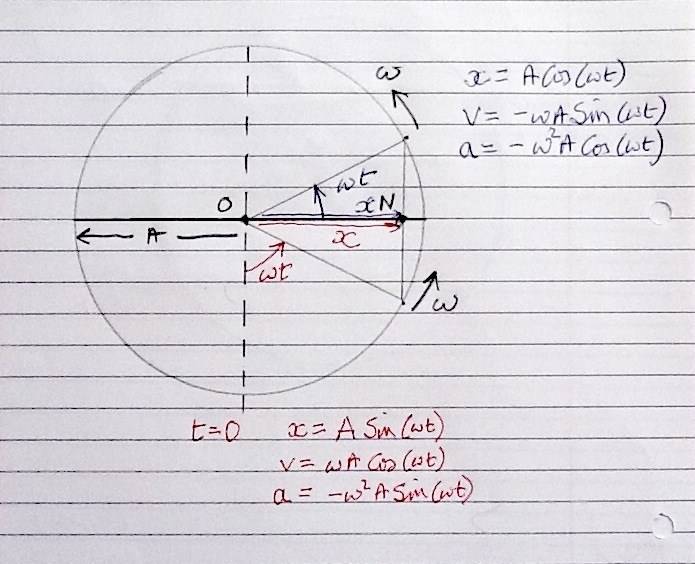 ω
x = A Cos(ωt)
v = -ωA Sin(ωt)
a = -ω²A Cos(ωt)
ωt
O
x N
A
x
ωt
ω
t=0
x = A Sin(ωt)
v = ωA Cos(ωt)
a = -ω²A Sin(ωt)